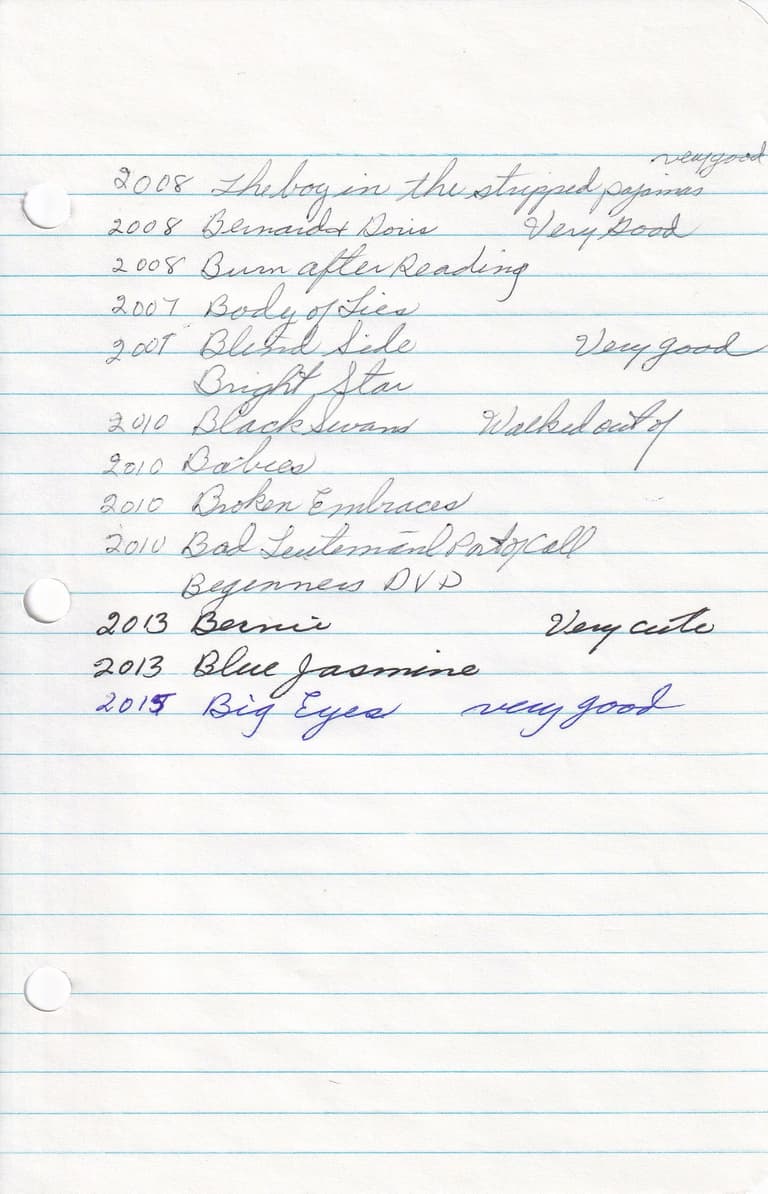 very good
2008 The boy in the stripped pajamas
2008 Bernard & Doris Very Good
2008 Burn after Reading
2007 Body of Lies
2009 Blind Side Very good
Bright Star
2010 Black Swans Walked out of
2010 Babies
2010 Broken Embraces
2010 Bad Leutemant Port of Call
Begenners DVD
2013 Bernie Very cute
2013 Blue Jasmine
2015 Big Eyes very good